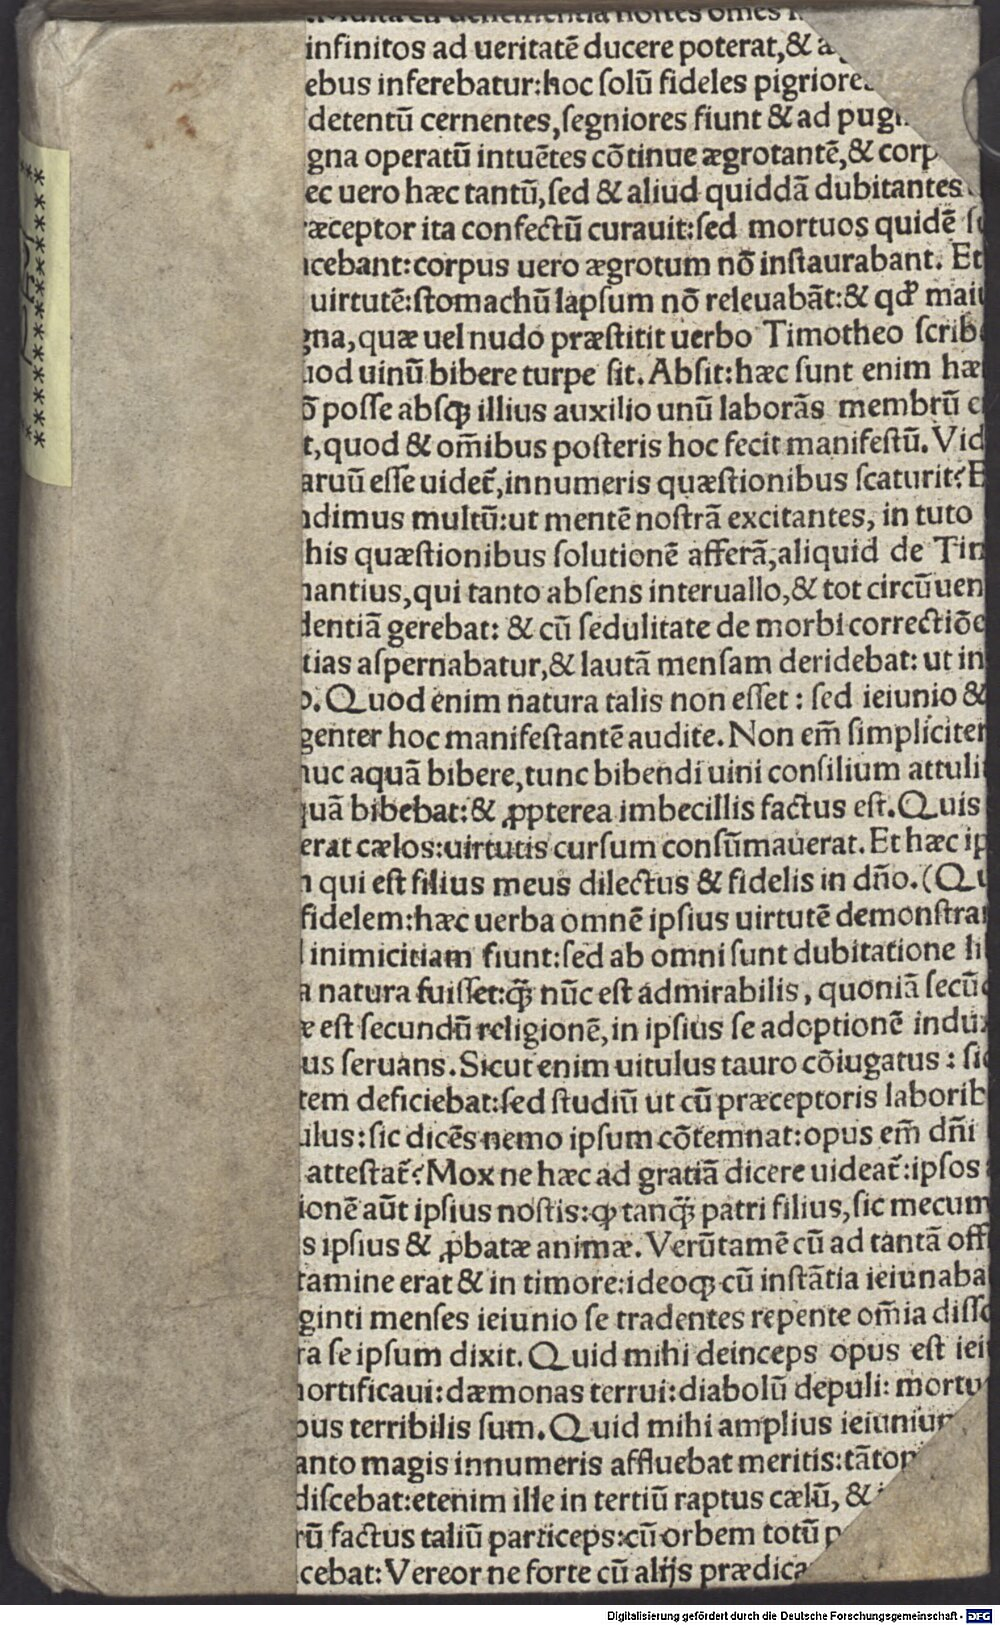 infinitos ad ueritatē ducere poterat,&
ebus inferebatur:hoc ſolū fideles
detentū cernentes,ſegniores fiunt & ad
gna operatū intuētes cōtinue ægrotantē,&
ec uero hæc tantū,ſed & aliud quiddā dubitantes
æceptor ita confectū curauit:ſed mortuos quidē
cebant:corpus uero ægrotum nō inſtaurabant. Et
uirtutē:ſtomachū lapſum nō releuabāt:& qđ
gna,quæ uel nudo præſtitit uerbo Timotheo
uod uinū bibere turpe ſit. Abſit:hæc ſunt enim hæ
ō poſſe abſqꝫ illius auxilio unū laborās membrū
t,quod & om̄ibus poſteris hoc fecit manifeſtū. Vid
aruū eſſe uidet̄,innumeris quæſtionibus ſcaturit?
dimus multū:ut mentē noſtrā excitantes, in tuto
his quæſtionibus ſolutionē afferā,aliquid de
nantius,qui tanto abſens interuallo,& tot circūuen
dentiā gerebat: & cū ſedulitate de morbi correctiōe
tias aſpernabatur,& lautā menſam deridebat: ut in
o. Quod enim natura talis non eſſet : ſed ieiunio &
genter hoc manifeſtantē audite. Non em̄ ſimpliciter
nuc aquā bibere,tunc bibendi uini conſilium attuli
quā bibebat:& ꝓpterea imbecillis factus eſt. Quis
erat cælos:uirtutis curſum conſūmauerat. Et hæc ip
n qui eſt filius meus dilectus & fidelis in dn̄o. (Qu
fidelem:hæc uerba omnē ipſius uirtutē demonſtra
inimicitiam fiunt:ſed ab omni ſunt dubitatione li
a natura fuiſſet:ꝙ̄ nūc eſt admirabilis, quoniā ſecū
æ eſt ſecundū religionē,in ipſius ſe adoptionē indu
us ſeruans. Sicut enim uitulus tauro cōiugatus :
tem deficiebat:ſed ſtudiū ut cū præceptoris laborib
ulus:ſic dicēs nemo ipſum cōtemnat:opus em̄ dn̄i
atteſtat̄? Mox ne hæc ad gratiā dicere uideat̄:ipſos
ionē aūt ipſius noſtis:ꝙ tanꝙ̄ patri filius,ſic mecum
s ipſius & ꝓbatæ animæ. Verūtamē cū ad tantā
tamine erat & in timore:ideoqꝫ cū inſtātia ieiunaba
ginti menſes ieiunio ſe tradentes repente om̄ia
ra ſe ipſum dixit. Quid mihi deinceps opus eſt
ortificaui:dæmonas terrui:diabolū depuli:
bus terribilis ſum. Quid mihi amplius
anto magis innumeris affluebat meritis:
diſcebat:etenim ille in tertiū raptus cælū, &
rū factus taliū particeps:cū orbem totū
cebat: Vereor ne forte cū alijs
Digitalisierung gefördert durch die Deutsche Forschungsgemeinschaft - DFG